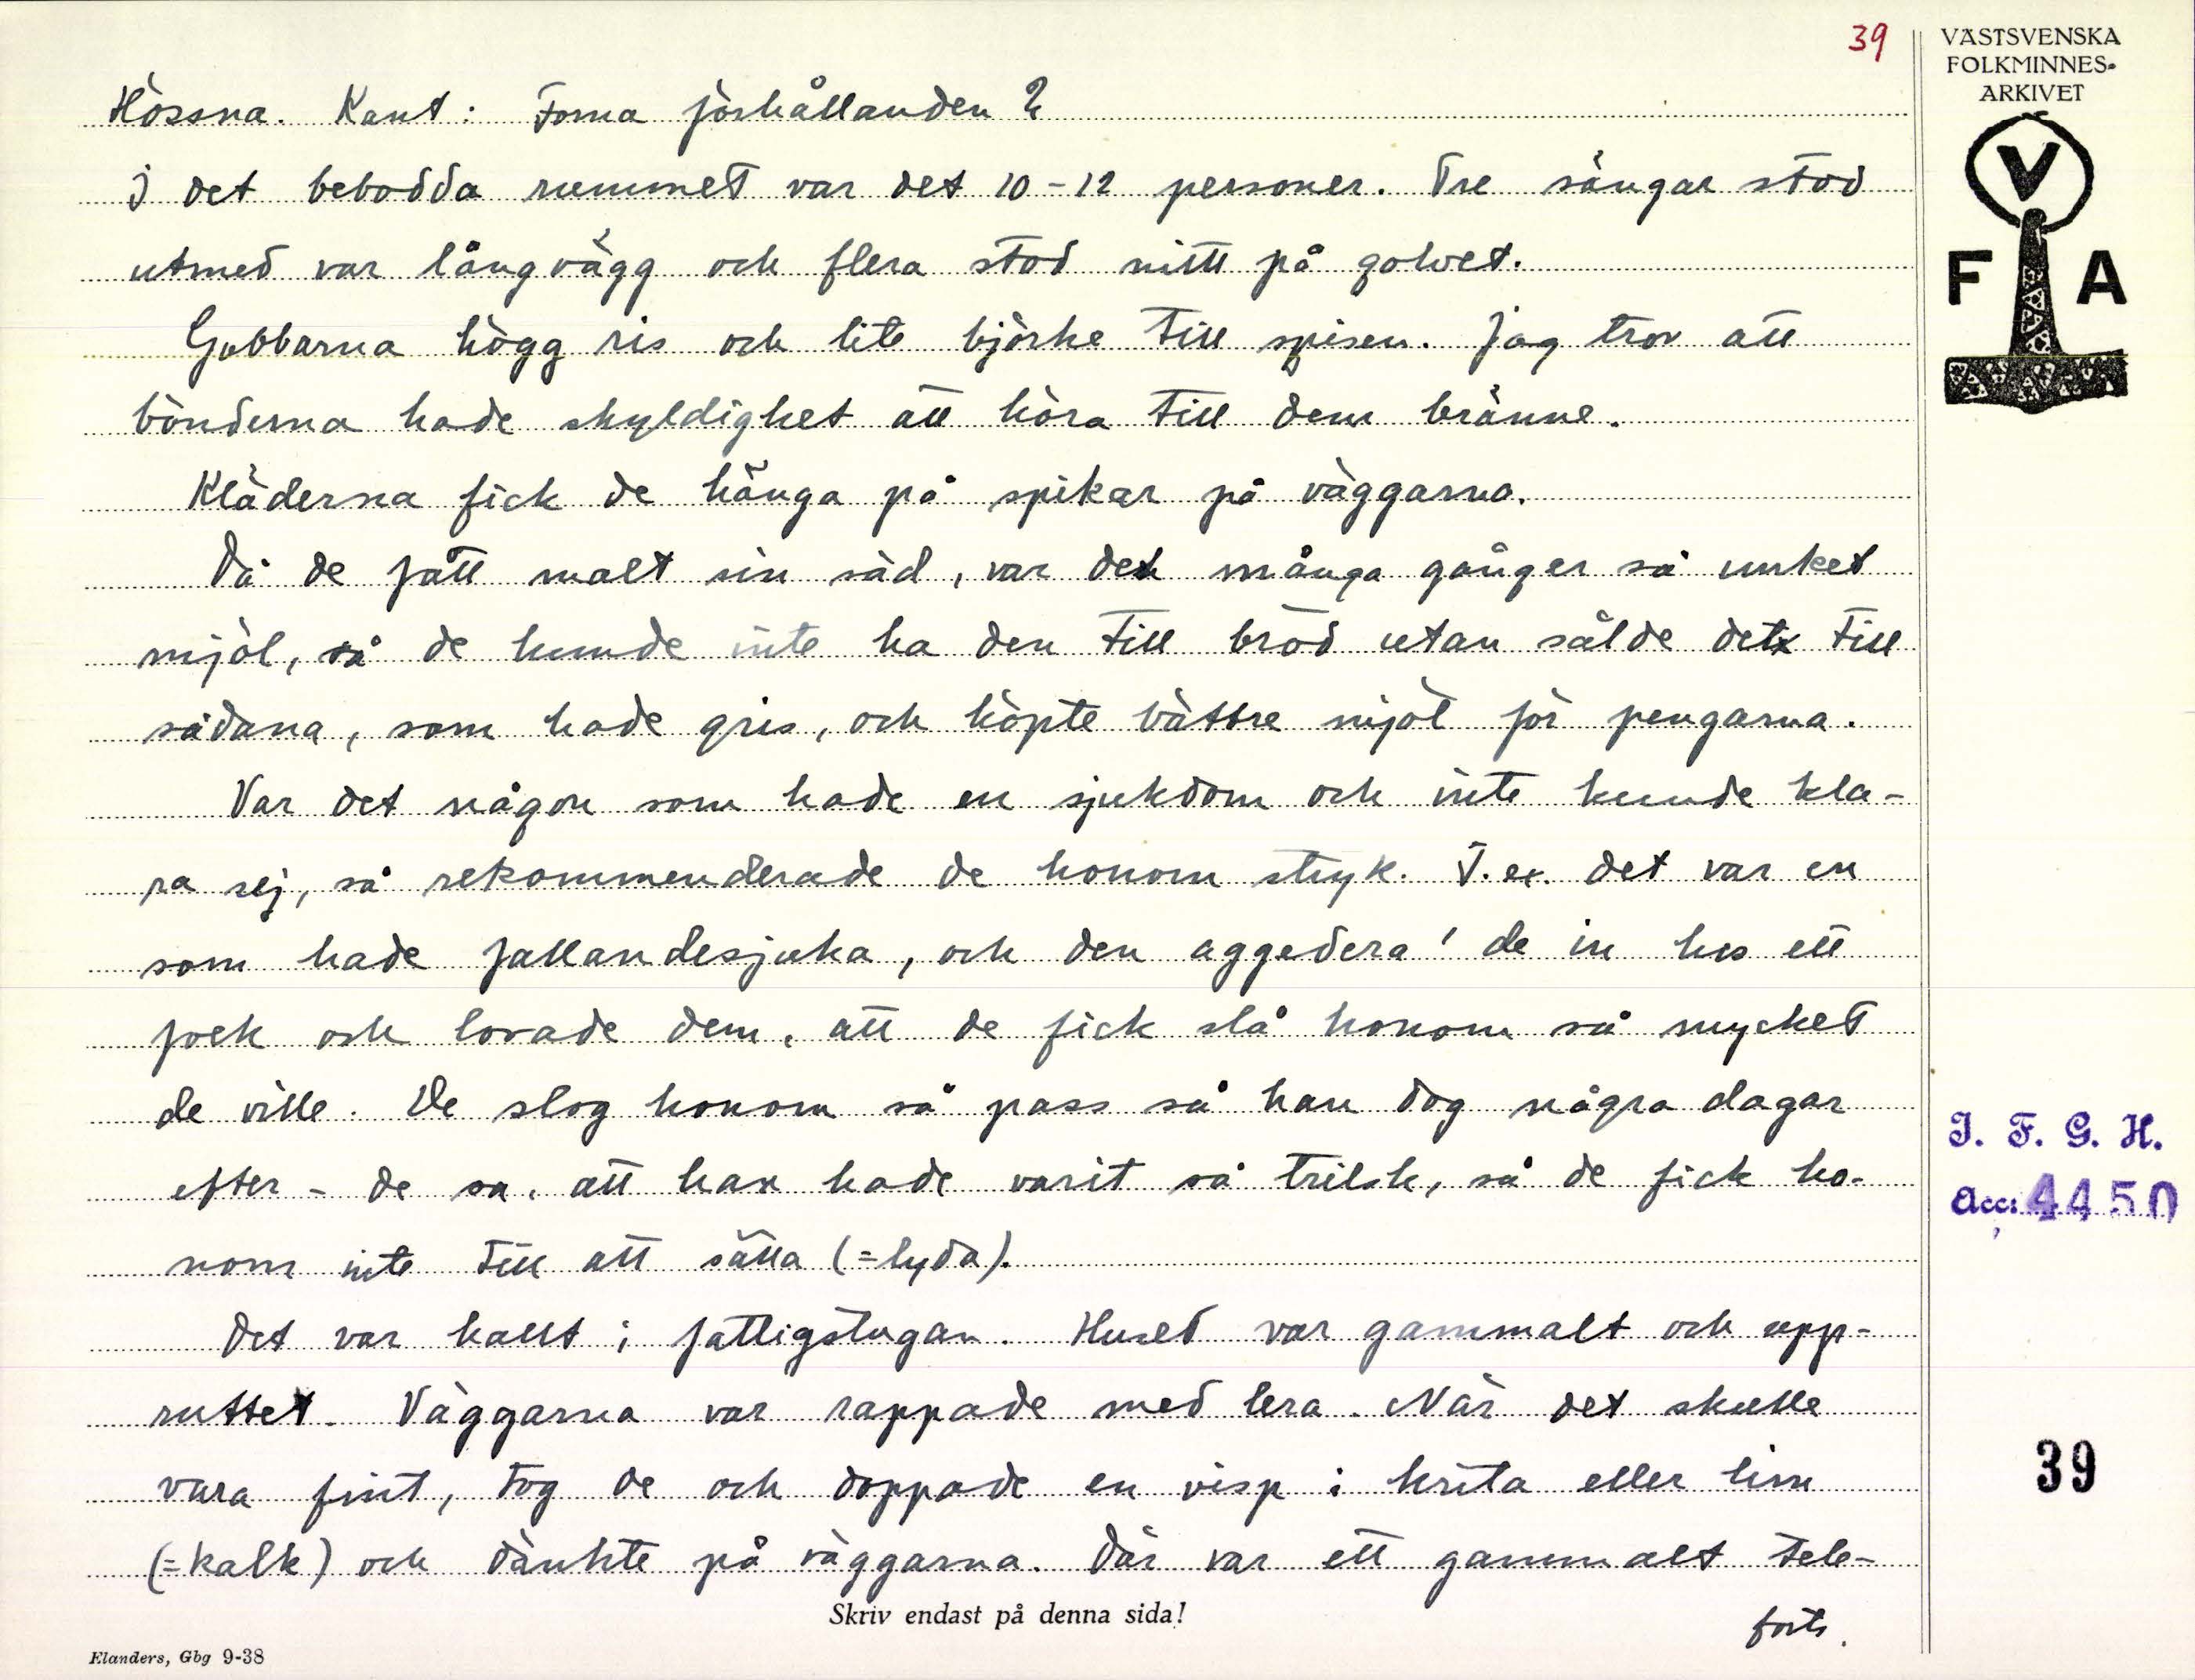 39
VÄSTSVENSKA
FOLKMINNES-
ARKIVET
V
F A
Hössna. Kant: Forna förhållanden 2
I det bebodda rummet var det 10-12 personer. Tre sängar stod
utmed var långvägg och flera stod mitt på golvet.
Gubbarna högg ris och lite björke till spisen. Jag tror att
bönderna hade skyldighet att köra till dem bränne.
Kläderna fick de hänga på spikar på väggarna.
Då de fått malt sin säd, var det många gånger så unket
mjöl, så de kunde inte ha den till bröd utan sålde det till
sådana, som hade gris, och köpte bättre mjöl för pengarna.
Var det någon som hade en sjukdom och inte kunde kla-
ra sej, så rekommenderade de honom stryk. T.ex. det var en
som hade fallandesjuka, och den aggedera! de in hos ett
folk och lovade dem, att de fick slå honom så mycket
de ville. De slog honom så pass så han dog några dagar
efter - de sa, att han hade varit så trilsk, så de fick ho-
nom inte till att sätta (=lyda).
Det var kallt i fattigstugan. Huset var gammalt och upp-
ruttet. Väggarna var rappade med lera. När det skulle
vara fint, tog de och doppade en visp i krita eller lim
(=kalk) och dänkte på väggarna. Där var ett gammalt tele-
forts.
Skriv endast på denna sida!
Elanders, Gbg 9-38
I. F. G. H.
Acc: 4450
39